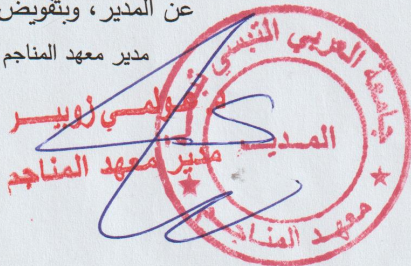 عن المدير، وبتفويض
مدير معهد المناجم
زوبير
مدير معهد المناجم
جامعة العربي التبسي
المديـر
معهد المناجم